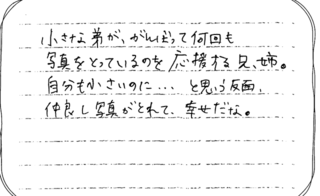 小さな弟が、がんばって何回も
写真をとっているのを応援する兄、姉。
自分も小さいのに… と思う反面、
仲良し写真がとれて、幸せだな。